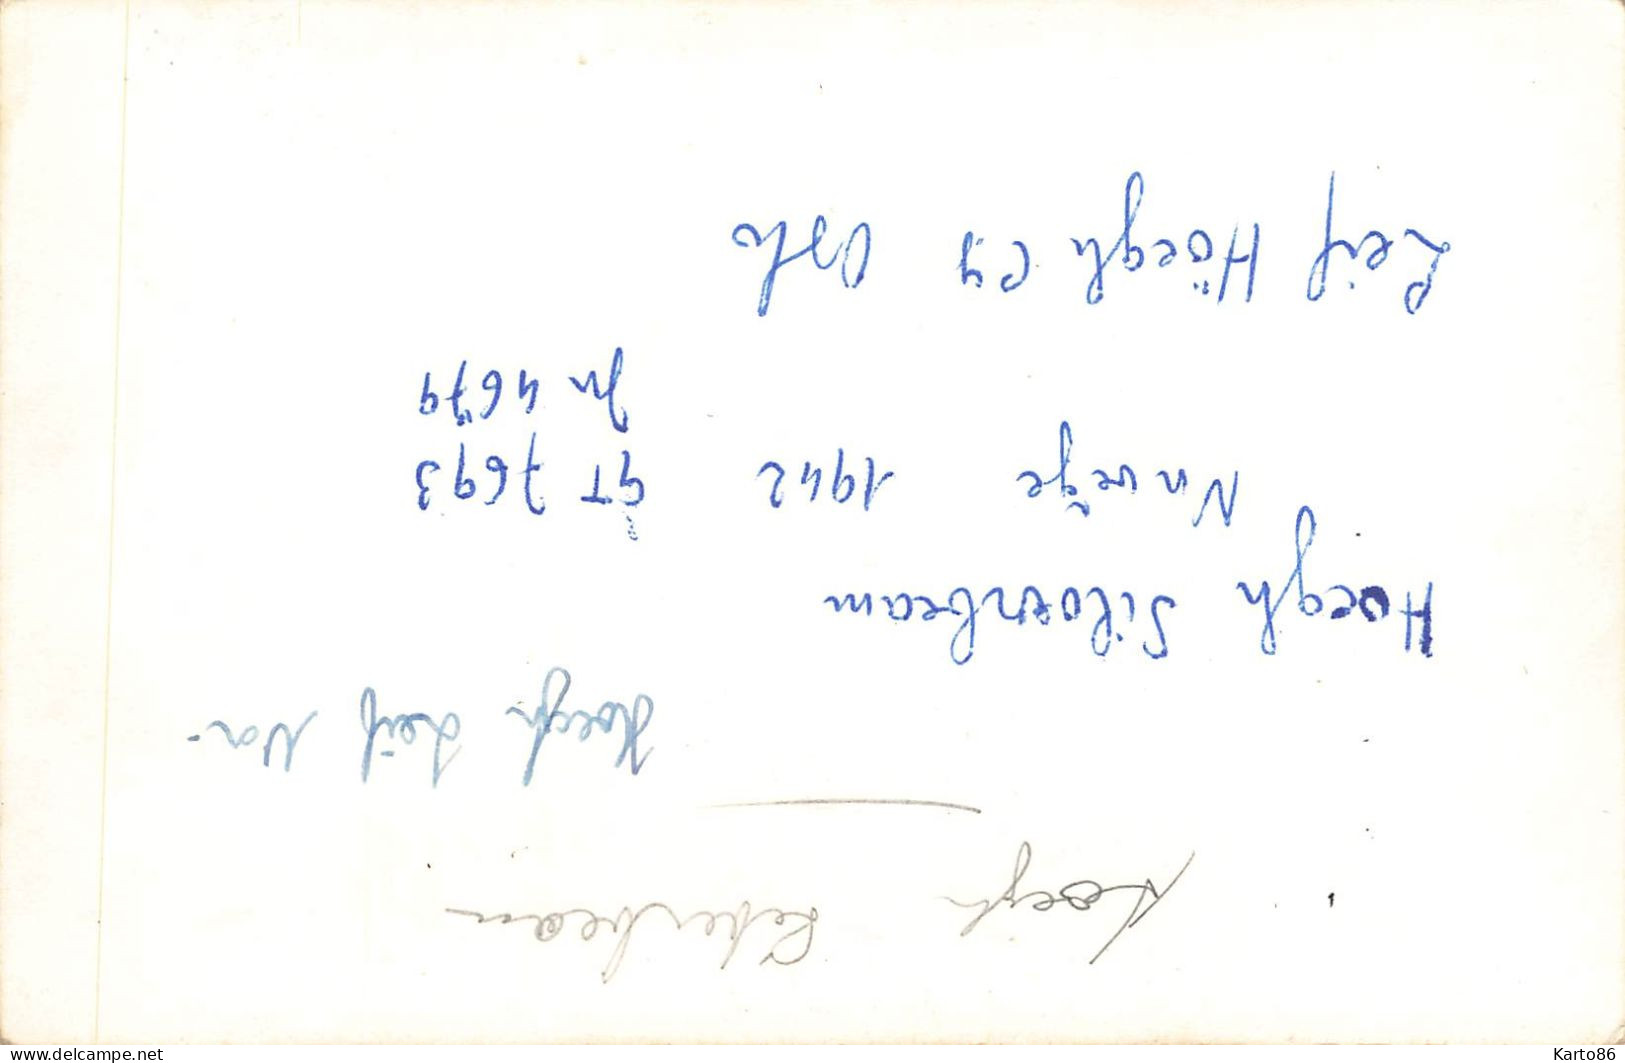 Hoegh Silverbeam
Hoegh Leif No.
Hoegh Silverbeam
Norvège 1942 GT 7693
Jn 4679
Leif Höegh Cy Oslo
delcampe.net
Karto86